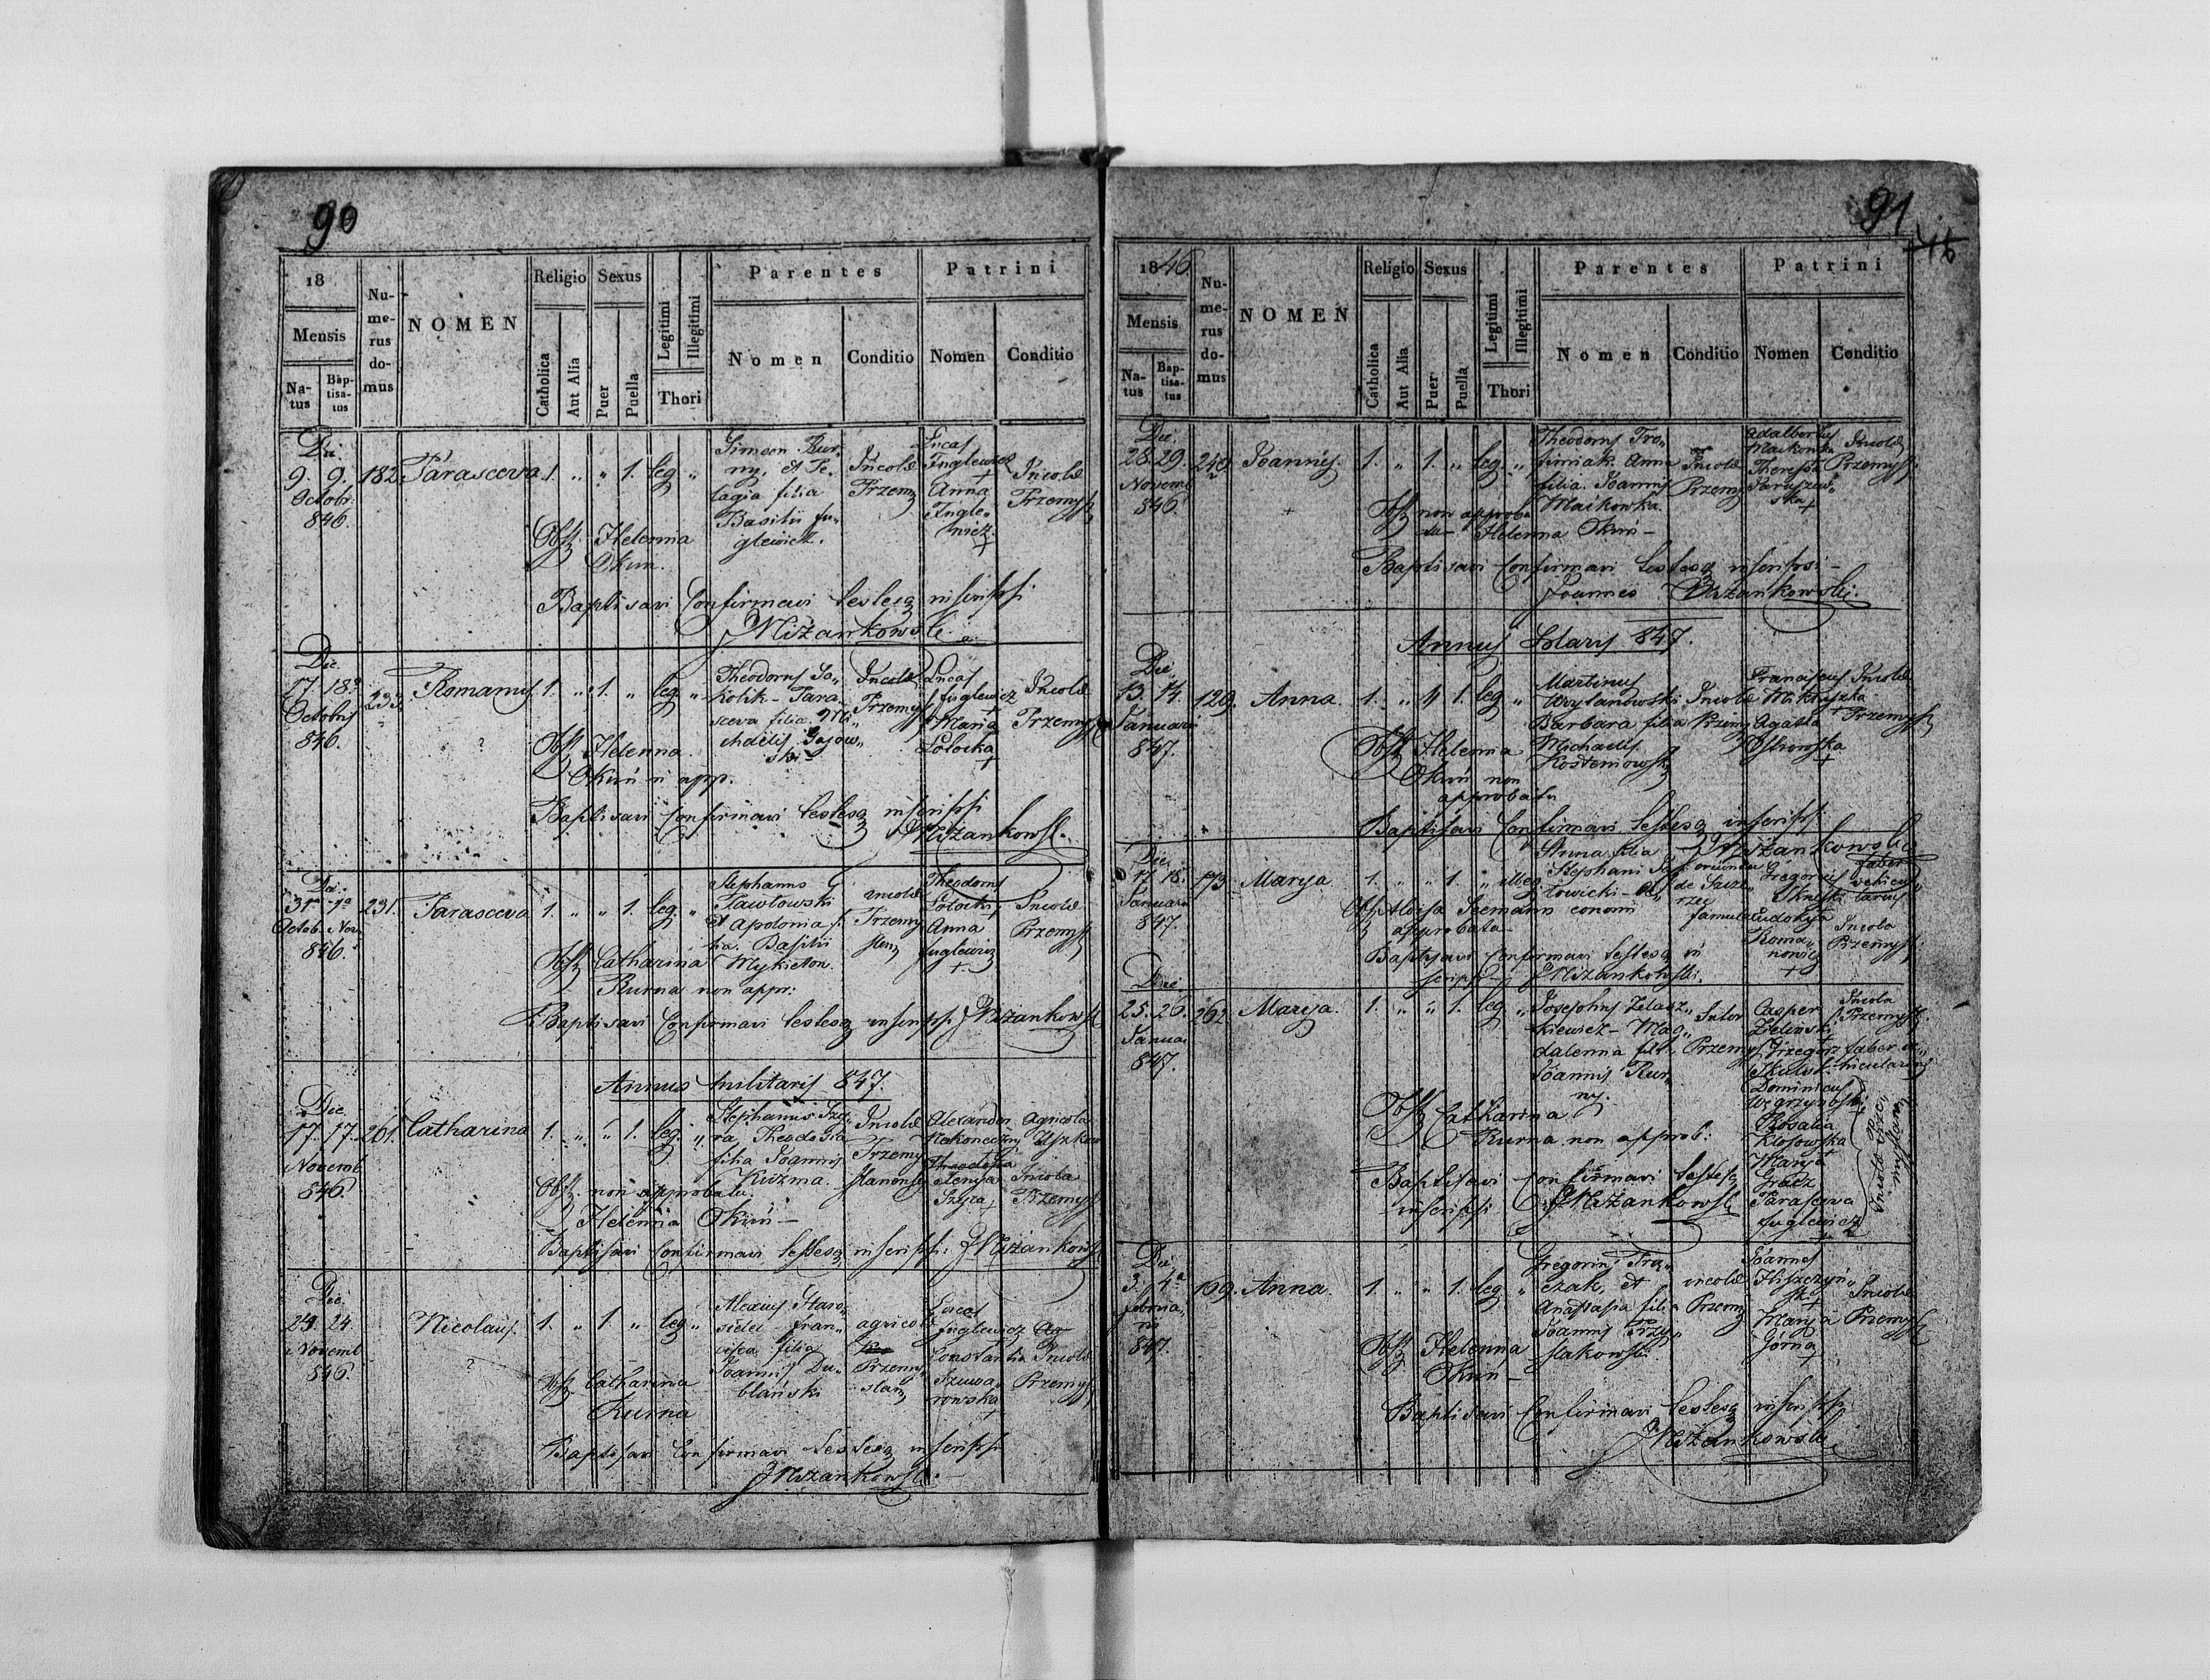 90
18
Mensis
Na-
tus
Bap-
tisa-
tus
Nu-
me-
rus
do-
mus
NOMEN
Religio
Catholica
Aut Alia
Sexus
Puer
Puella
Legitimi
Illegitimi
Thori
Parentes
Nomen
Conditio
Patrini
Nomen
Conditio
Die
9. 9.
Octobr:
846.
182
Parasceva
1. „ „ 1. leg „
Simeon Kur„
ny, et Pe„
lagia filia
Basilii Ju„
glewicz.
Incolae
Przem
Lucas
Juglewicz
+
Anna
Jugle„
wicz
+
Incolae
Przemysl
Obst. Helenna
Okun.
Baptisavi Confirmavi testesq inscripsi
J Nizankowski.
Die
17. 18a
Octobris
846.
233
Romanus
1. „ 1. „ leg. „
Theodorus So„
kolik - Para„
sceva filia Mi„
chaelis Gajow„
ski
Incolae
Przemys
Lucas
Juglewicz
+
Maria
Solocka
+
Incolae
Przemys
Obst Helenna
Okuń n app.
Baptisavi Confirmavi testesq inscripsi
J Nizankowski.
Die.
31a 1a
Octob. Nov.
846.
231.
Parasceva
1. „ „ 1. leg. „
Stephanus
Pawlowski
et Apolonia fi„
lia Basilii
Mykieton.
Incolae
Przemy
slen
Theodorus
Solocki
+
Anna
Juglewicz
+
Incolae
Przemys
Obst Catharina
Kurna non appr:
Baptisavi Confirmavi testesq inscripsi J Nizankowski
Annus militaris 847.
Die
17. 17.
Novemb
846.
261.
Catharina
1. „ „ 1. leg. „
Stephanus Szy„
ra, Theodosia
filia Joannis
Kuzma.
Incolae
Przemy
slanens
Alexander
Nakoneczny
Theodosia
Szyra +
Agricola
Incola
Przemys
Obst. non approbata
Helenna Okuń -
Baptisavi Confirmavi testesq inscripsi: J Nizankowski
Die.
24. 24.
Novemb
846.
Nicolaus.
1. „ 1 „ leg „
Alexius Staro„
sidei fran„
cisca filia
Joannis Du„
blański
agricolae
Przemy
slan
Lucas
Juglewicz
Constantia
Szuwa„
rowska
+
Incolae
Przemys
Obst Catharina
Kurna
Baptisavi Confirmavi testesq inscripsi
J Nizankowski.
91
46
1846
Mensis
Na-
tus
Bap-
tisa-
tus
Nu-
me-
rus
do-
mus
NOMEN
Religio
Catholica
Aut Alia
Sexus
Puer
Puella
Legitimi
Illegitimi
Thori
Parentes
Nomen
Conditio
Patrini
Nomen
Conditio
Die.
28. 29.
Novemb
846.
240
Joannes.
1. „ 1. „ leg. „
Theodorus Tro„
fimiak. Anna
filia Joannis
Maikowka.
Incolae
Przemy
Adalbertus
Maikowka
Theresia
Paraszew„
ska +
Incolae
Przemysl.
Obst non approba
ta - Helenna Okuń -
Baptisavi Confirmavi testesq inscripsi -
Joannes Nizankowski.
Annus Solaris 847.
Die
13. 14.
Januarii
847.
129.
Anna.
1. „ „ 1. leg „
Martinus
Woylanowski
Barbara filia
Michaelis
Kosteniowski
Incolae
Przemy
Franciscus
Mikruszka
+
Agatha
Ostrowska
+
Incolae
Przemysl
Obst Helenna
Okuń non
approbata
Baptisavi Confirmavi testesq inscripsi.
J Nizankowski
Die
17. 18.
Januarii
847.
173
Marya
1. „ „ 1. „ illeg.
Anna filia
Stephani
famula
Gregorius
Eudokia
Roma„
nowicz
+
faber
Incola
Przemysl.
Obst Aloisa Seemann
approbata
Baptisavi Confirmavi testesq in
scripsi - J Nizankowski.
Die
25. 26.
Januar
847.
262
Marya.
1. „ „ 1. leg. „
Josephus Zelasz„
kiewicz - Mag„
dalenna filia
Joannis Kur„
ny.
Sutor
Przemys
Casper
Zielinski
+
Grzegorz
Dominicus
Węgrzynoski
Rosalia
Klosowska
Marya
Gracz
Parasceva
Juglewicz
Incola
Przemysl.
faber ve„
hicularius
Incolae Prze„
myslan
Obst Catharina
Kurna non approb:
Baptisavi Confirmavi testesq
inscripsi J Nizankowski
Die
3. 4a
februa„
rii
847.
169.
Anna.
1. „ „ 1. leg „
Gregorius
czak, et
Anastasia filia
Joannis Przy„
slakowski.
incolae
Przemy
Joannes
Hiszczyń„
ski
+
Marya
Górna
+
Incolae
Przemysl
Obst Helenna
Okun -
Baptisavi Confirmavi testesq inscripsi
J Nizankowski